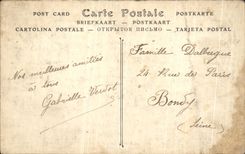 POST CARD Carte Postale POSTKARTE
BRIEFKAART — POSTKAART
CARTOLINA POSTALE — ОТКРЫТОЕ ПИСЬМО — TARJETA POSTAL
Nos meilleures amitiés
à tous
Gabrielle
Famille
24 Rue de Paris
Bondy
(Seine)